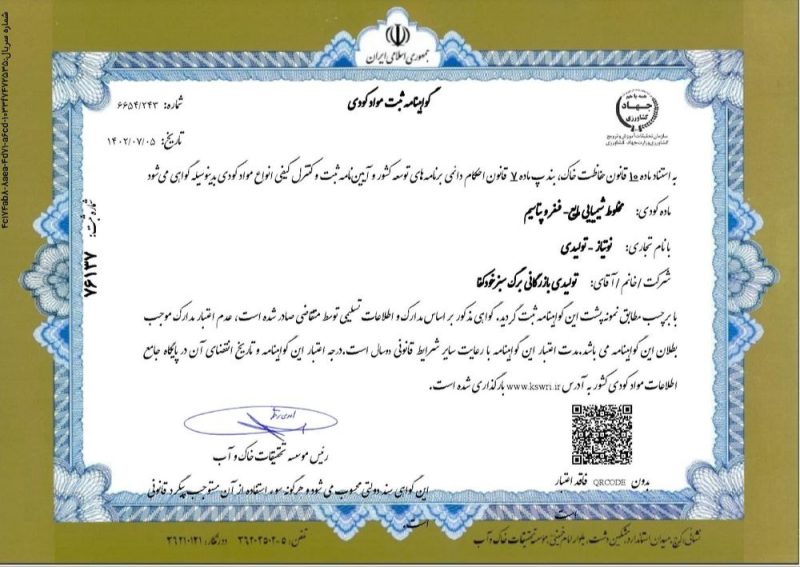 جمهوری اسلامی ایران
گواهینامه ثبت مواد کودی
شماره: ۶۶۵۴/۲۴۳
تاریخ: ۱۴۰۲/۰۷/۰۵
همه با هم
جهاد
کشاورزی
سازمان تحقیقات، آموزش و ترویج
کشاورزی وزارت جهاد کشاورزی
به استناد ماده ۱۰ قانون حفاظت خاک، بند پ ماده ۷ قانون احکام دائمی برنامه های توسعه کشور و آیین نامه ثبت و کنترل کیفی انواع مواد کودی بدینوسیله گواهی می شود
ماده کودی: مخلوط شیمیایی مایع- فسفر و پتاسیم
با نام تجاری: نوتیاز - تولیدی
شرکت / خانم / آقای: تولیدی بازرگانی برگ سبز خودکفا
با برچسب مطابق نمونه پشت این گواهینامه ثبت گردید. گواهی مذکور بر اساس مدارک و اطلاعات تسلیمی توسط متقاضی صادر شده است، عدم اعتبار مدارک موجب
بطلان این گواهینامه می باشد. مدت اعتبار این گواهینامه با رعایت سایر شرایط قانونی دو سال است. درجه اعتبار این گواهینامه و تاریخ انقضای آن در پایگاه جامع
اطلاعات مواد کودی کشور به آدرس www.kswri.ir بارگذاری شده است.
شماره ثبت:
۷۶۱۳۷
رئیس موسسه تحقیقات خاک و آب
بدون QRCODE فاقد اعتبار
است
این گواهی سند دولتی محسوب می شود و هرگونه سوء استفاده از آن مستوجب پیگرد قانونی
است.
نشانی: کرج، میدان استاندارد، مشکین دشت، بلوار امام خمینی، موسسه تحقیقات خاک و آب
تلفن: ۵-۳۶۲۰۲۵۰۲ دورنگار: ۳۶۲۱۰۱۲۱
شماره سریال: